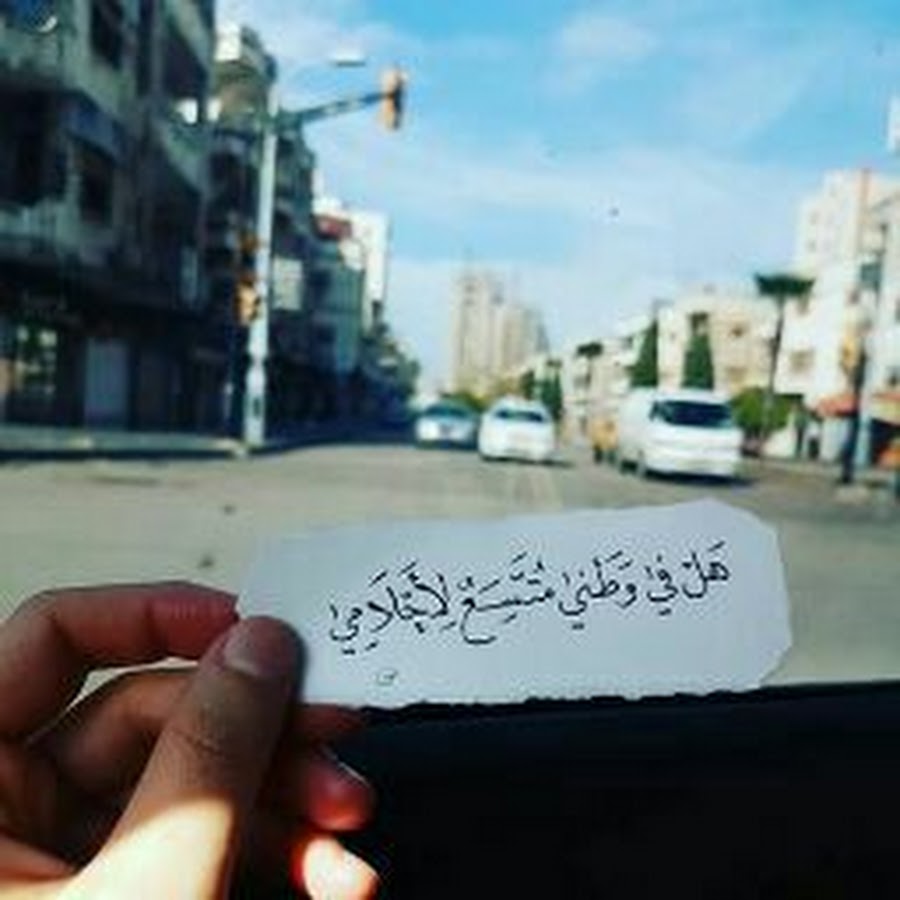 هَلْ فِي وَطَنِي مُتَّسَعٌ لِأَحْلَامِي